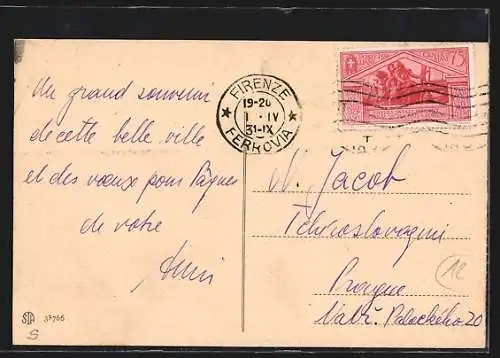 Un grand souvenir
de cette belle ville
et des vœux pour Pâques
de votre
FIRENZE
19-20
1 · IV
31-IX
FERROVIA
75
M. Jacob
Tchécoslovaquie
Prague
Nábř. Palackého 20
12
STA 35766
S